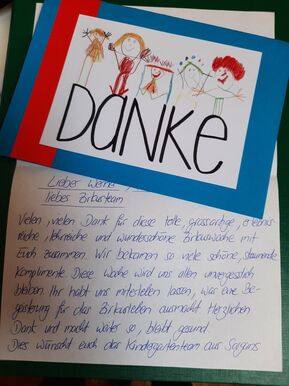 DANKE
Lieber Werner,
liebes Zirkusteam
Vielen, vielen Dank für diese tolle, grossartige, erlebnis-
reiche, lehrreiche und wunderschöne Zirkuswoche mit
Euch zusammen. Wir bekamen so viele schöne, staunende
Komplimente. Diese Woche wird uns allen unvergesslich
bleiben. Ihr habt uns miterleben lassen, was eure Be-
geisterung für das Zirkusleben ausmacht. Herzlichen
Dank und macht weiter so, bleibt gesund.
Dies wünscht euch das Kindergartenteam aus Sargans